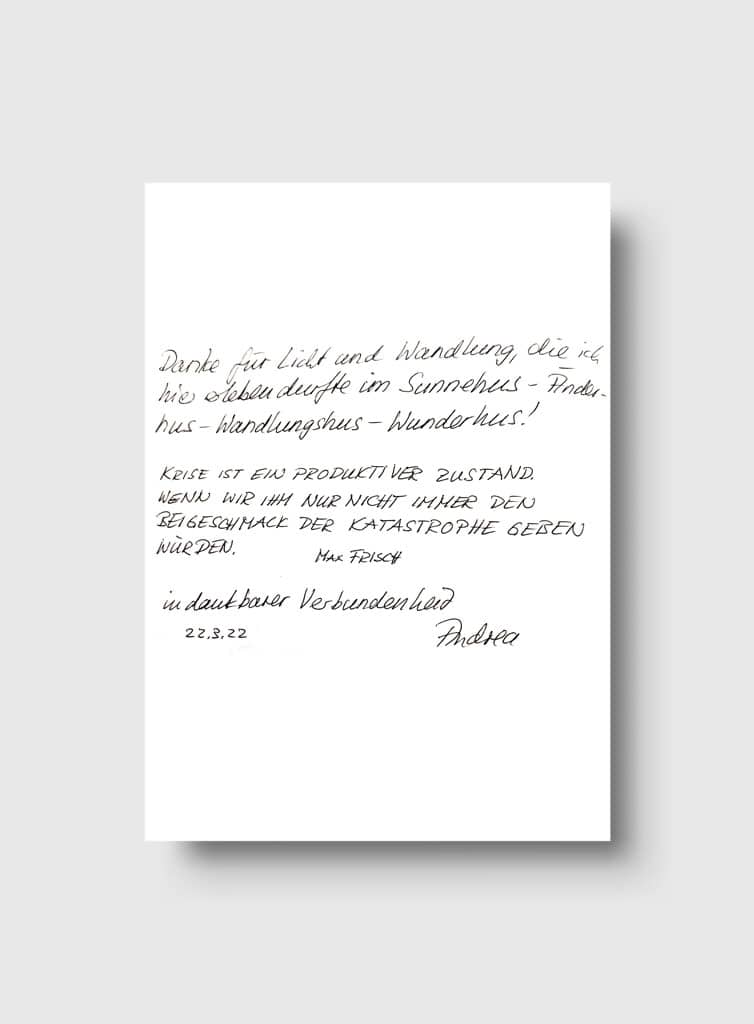 Danke für Licht und Wandlung, die ich
hier erleben durfte im Sunnehus - Änder-
hus - Wandlungshus - Wunderhus!
KRISE IST EIN PRODUKTIVER ZUSTAND.
WENN WIR IHM NUR NICHT IMMER DEN
BEIGESCHMACK DER KATASTROPHE GEBEN
WÜRDEN. MAX FRISCH
in dankbarer Verbundenheid
22.3.22 Andrea